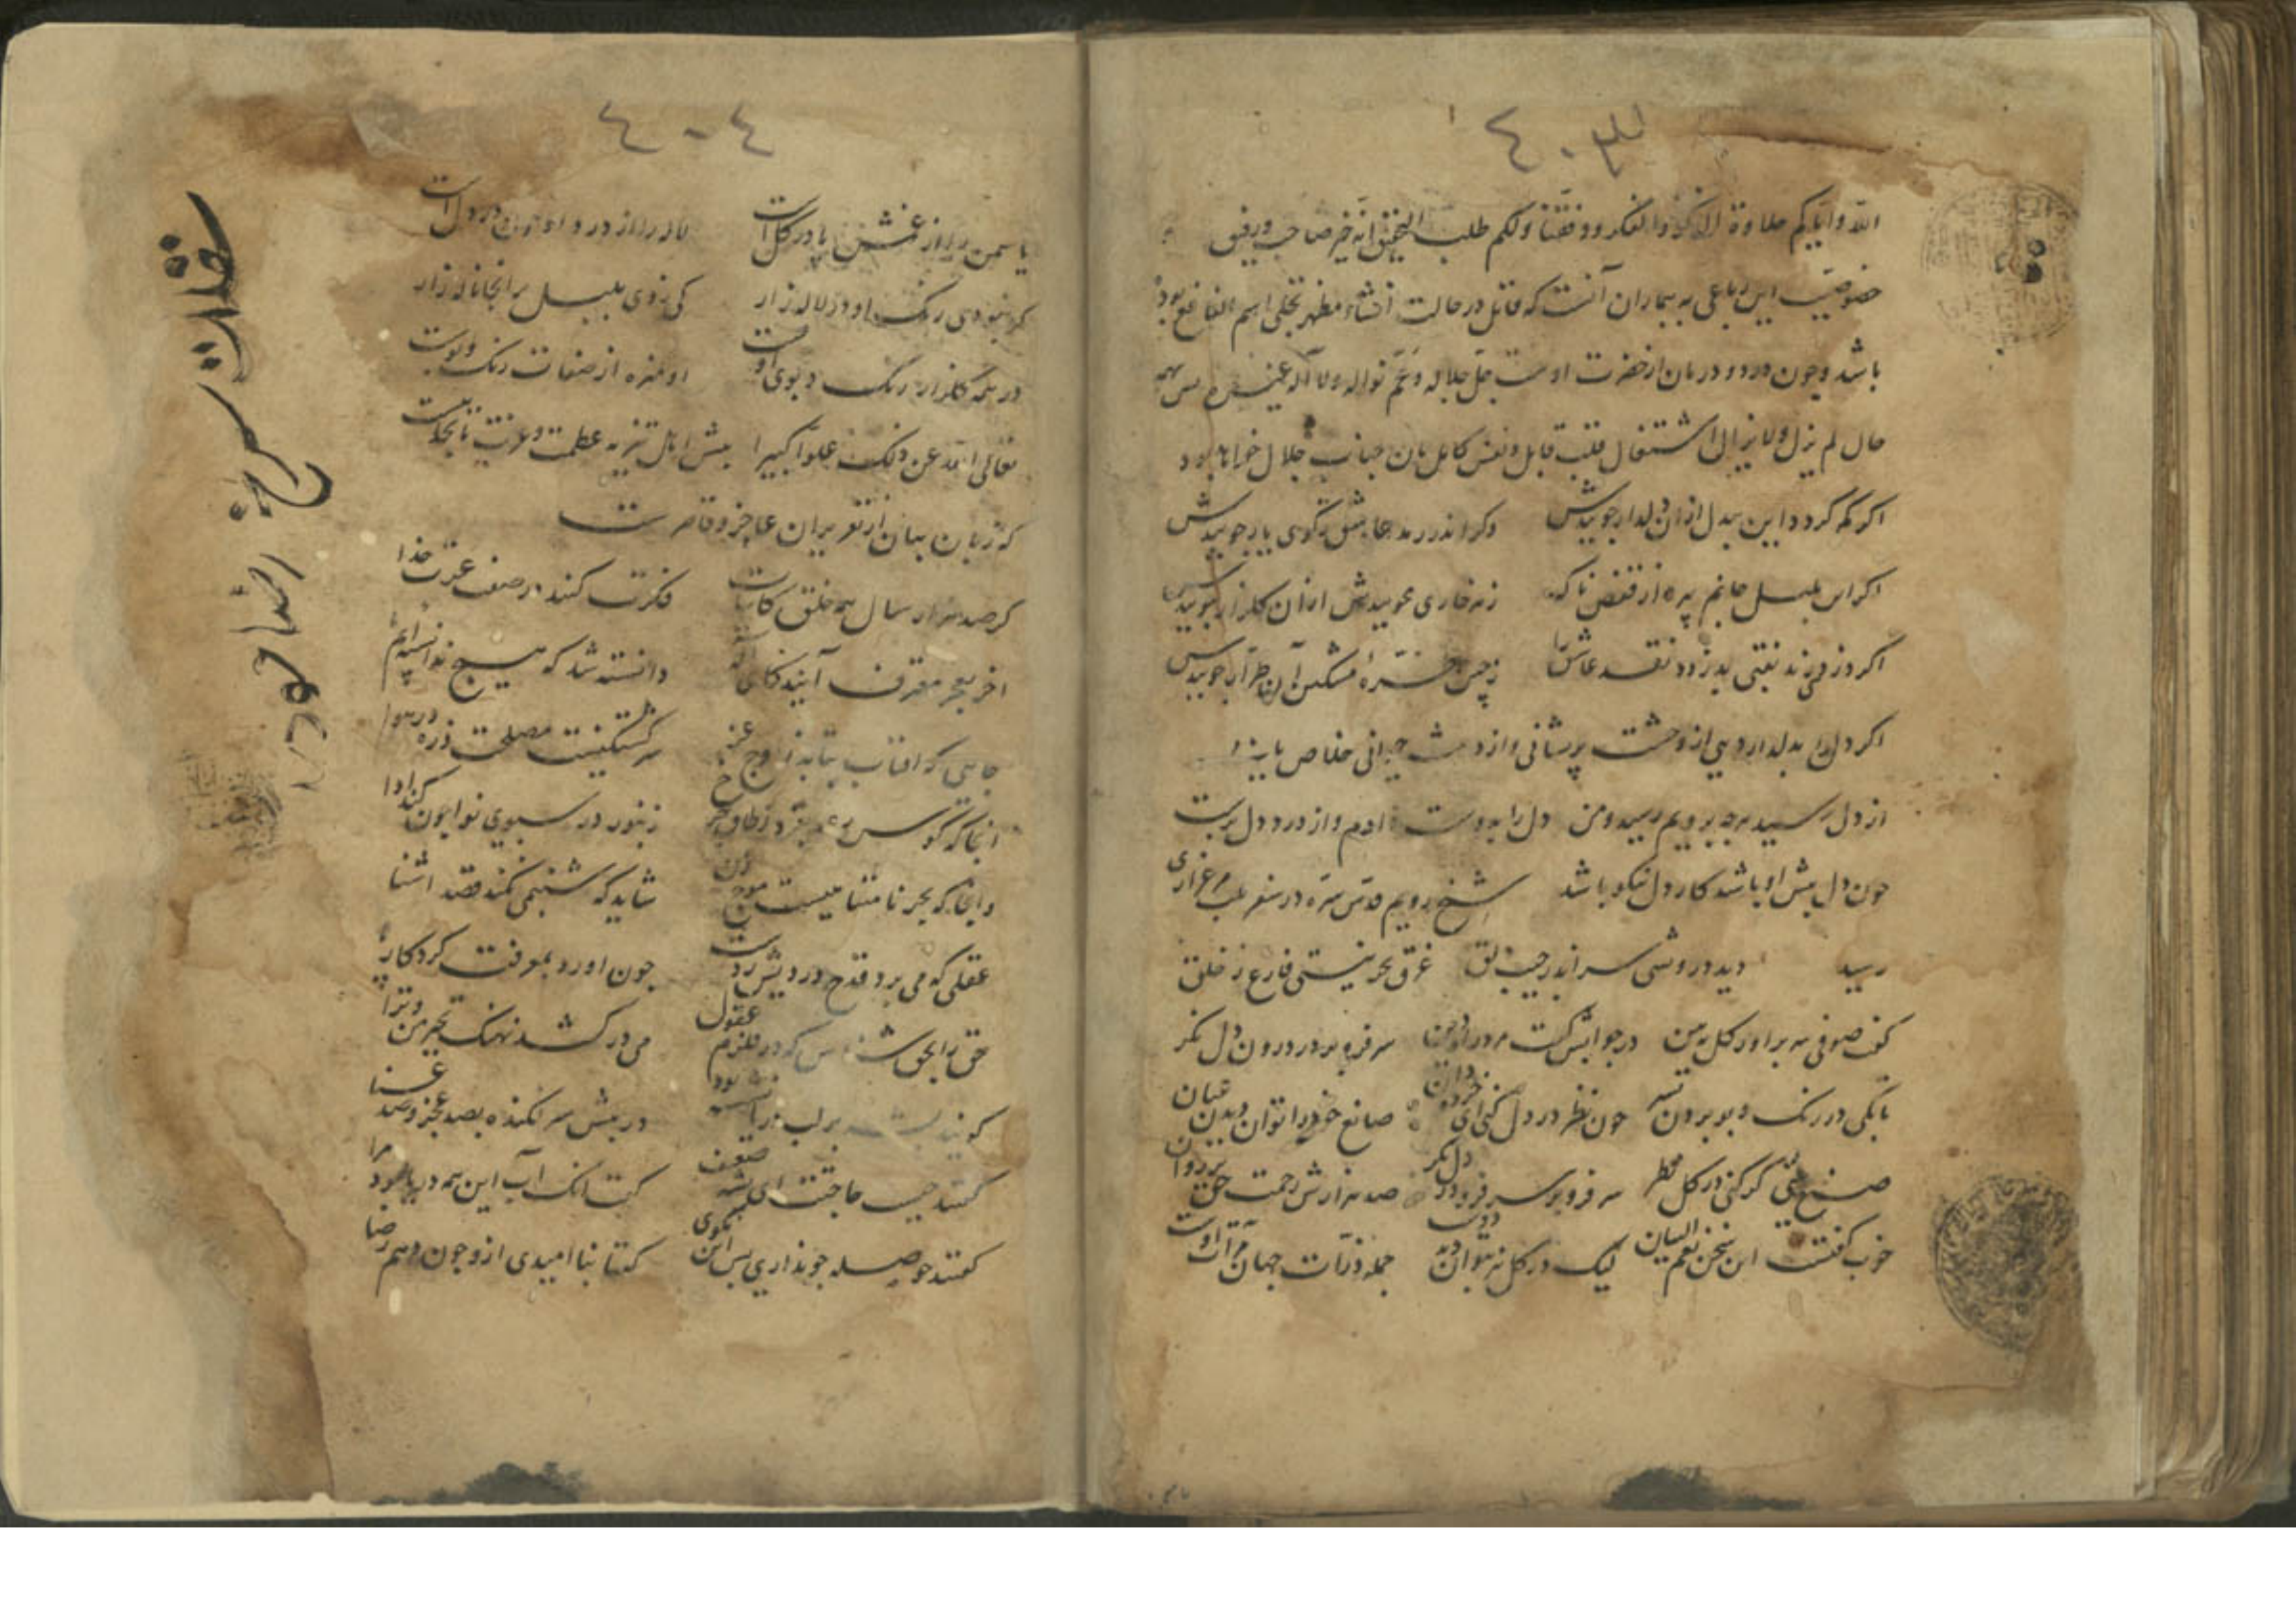 ٤٠٣
الله وایاکم حلاوة الذکر والفکر ووفقنا ولکم طلب التحقیق انه خیر صاحب ورفیق
خصوصیت این رباعی به بیماران آنست که قائل در حالت انشاء مظهر تجلی اسم النافع بوده
باشد وچون درد و درمان از حضرت اوست جل جلاله وعم نواله ولا اله غیره پس
حال لم یزل ولا یزال اشتغال قلب قابل ونفس کامل بان جناب جلال خواهد بود
اکر کم کردد این بیدل ازان دلدار جوییدش وکر اندر رمد عاشق بکوی یار جوییدش
اکر این بلبل جانم پرد از قفس ناکه زهر خاری مجوییدش ازان کلزار جوییدش
اکر دزد زند نقبی بدزدد نقد عاشق را آن طرار جوییدش
اکر دل را بدلدار دهی از وحشت پریشانی و از دهشت حیرانی خلاص یابد
از دل رسید هر چه برویم رسید ومن دل را بدوست دادم و از درد دل برست
چون دل پیش او باشد کار دل نیکو باشد شیخ رویم قدس سره در سفر بمرغزاری
رسید دید درویشی سر اندر جیب دلق غرق بحر نیستی فارغ ز خلق
کفت صوفی سر براور کل ببین در جوابش کفت سر فرو بر در درون دل نکر
تابکی در رنک و بو بردن بسر چون نظر در دل کنی ای خرده دان صانع خود را توان دیدن عیان
صنع بینی کر کنی در کل نظر سر فرو بر سر فرو در دل نکر صد هزارش رحمت حق بر روان
خوب کفتست این سخن نعم البیان لیک در کل نیز بتوان دید دوست جمله ذرات جهان مرآت اوست
٤٠٤
یاسمن را از غمش پا در کل است لاله را از درد او در دل است
کر نبودی رنک او در لاله زار کی زدی بلبل بر انجا ناله زار
در همه کلزار رنک و بوی اوست او منزه از صفات رنک و بوست
تعالی الله عن ذلک علوا کبیرا پیش اهل تنزیه عظمت و عزت تا بحدیست
که زبان بیان از تقریر ان عاجز و قاصرست
کر صد هزار سال همه خلق کاینات فکرت کنند در صفت عزت خدا
اخر بعجز معترف آیند کای اله دانسته شد که هیچ ندانسته ایم ما
جایی که افتاب بتابد ز اوج عز سرکشتکیست مصلحت ذره در هوا
انجا که کوس رعد بغرد ز طاق چرخ زنبور در سبوی نوا چون کند ادا
وانجا که بحر نامتناهیست موج زن شاید که شبنمی نکند قصد اشنا
عقلی که می برد قدح دردیش ز دست چون اورد بمعرفت کردکار پا
حق را بحق شناس که در قلزم عقول می درکشد نهنک تحیر من و ترا
برلب دریا نشسته بود در پیش سر فکنده بصد عجز و صد عنا
کفتند چیست حاجتت ای پشه ضعیف کفتا انک آب این همه دریا بود مرا
کفتند حوصله چو نداری بس این مکوی کفتا بنا امیدی ازو چون دهم رضا